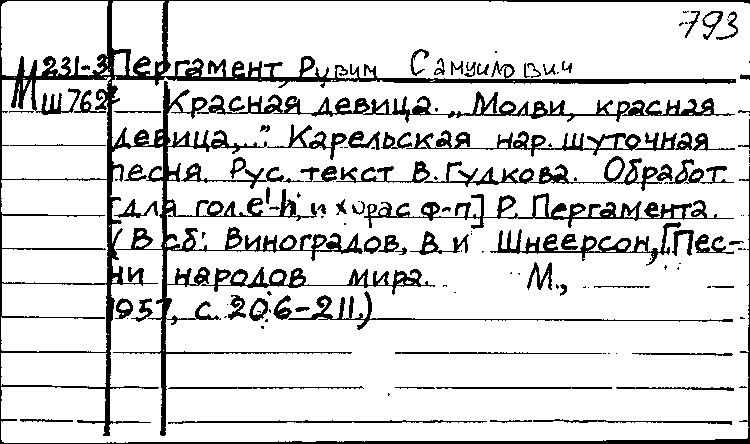 793
М 231-3 Пергамент, Рувим Самуилович
Ш762² Красная девица. „Молви, красная
девица,..." Карельская нар. шуточная
песня. Рус. текст В. Гудкова. Обработ.
[для гол. e¹-h¹, и хора с ф-п.] Р. Пергамента.
(В сб: Виноградов, В. и Шнеерсон, [Пес-
ни народов мира. М.,
1957, с. 206-211.)